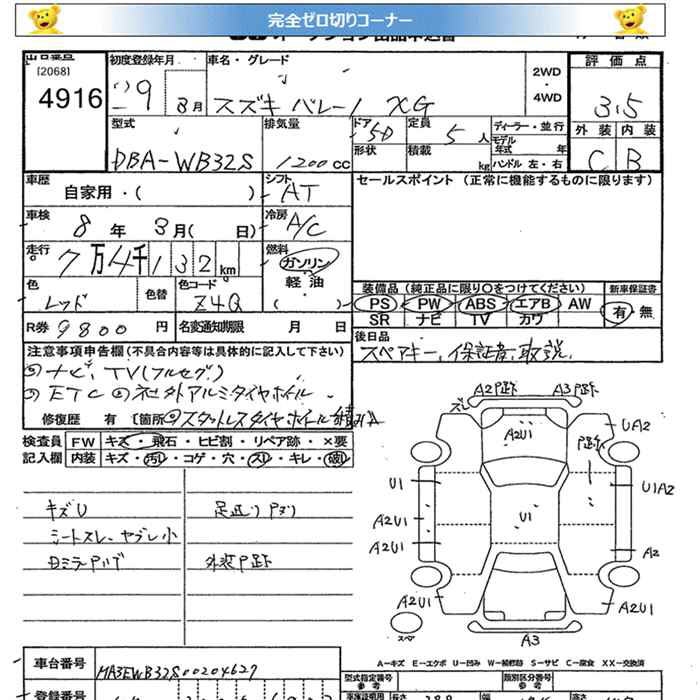 完全ゼロ切りコーナー
出品番号 初度登録年月 車名・グレード 評価点
[2068]
4916 29 3月 スズキ バレーノ XG 2WD・4WD 3.5
型式 排気量 ドア 5D 定員 5人 ディーラー・並行 外装 内装
DBA-WB32S 1200cc 形状 積載 kg モデル年式 年 ハンドル 左・右 C B
車歴 シフト セールスポイント (正常に機能するものに限ります)
自家用・( ) AT
車検 冷房
8年 3月( 日) A/C
走行 燃料
7万4千132km ガソリン・軽油
色 色替 色コード ( ) 装備品 (純正品に限り〇をつけてください) 新車保証書
レッド Z4Q PS PW ABS エアB AW 有・無
SR ナビ TV カワ
R券 9800円 名変通知期限 月 日 後日品
スペアキー、保証書、取説
注意事項申告欄(不具合内容等は具体的に記入して下さい)
ナビ、TV(フルセグ)
ETC 社外アルミタイヤホイール
修復歴 有 [箇所 スタットレスタイヤホイール積み
検査員 FW キズ・飛石・ヒビ割・リペア跡・×要
記入欄 内装 キズ・汚れ・コゲ・穴・スレ・キレ
キズU
シートスレ ヤブレ小
外装P跡
A2P跡 A3P跡
ズレ
A2U1 P跡 UA2
U1 U1 U1A2
A2U1
A2U1 A2
A2U1 A2U1
スペア A3
A-キズ E-エクボ U-凹み W-補修跡 S-サビ C-腐食 XX-交換済
車台番号 MA3EWB32S00204627
型式指定番号 類別区分番号
参考 参考
登録番号 長さ 幅 高さ